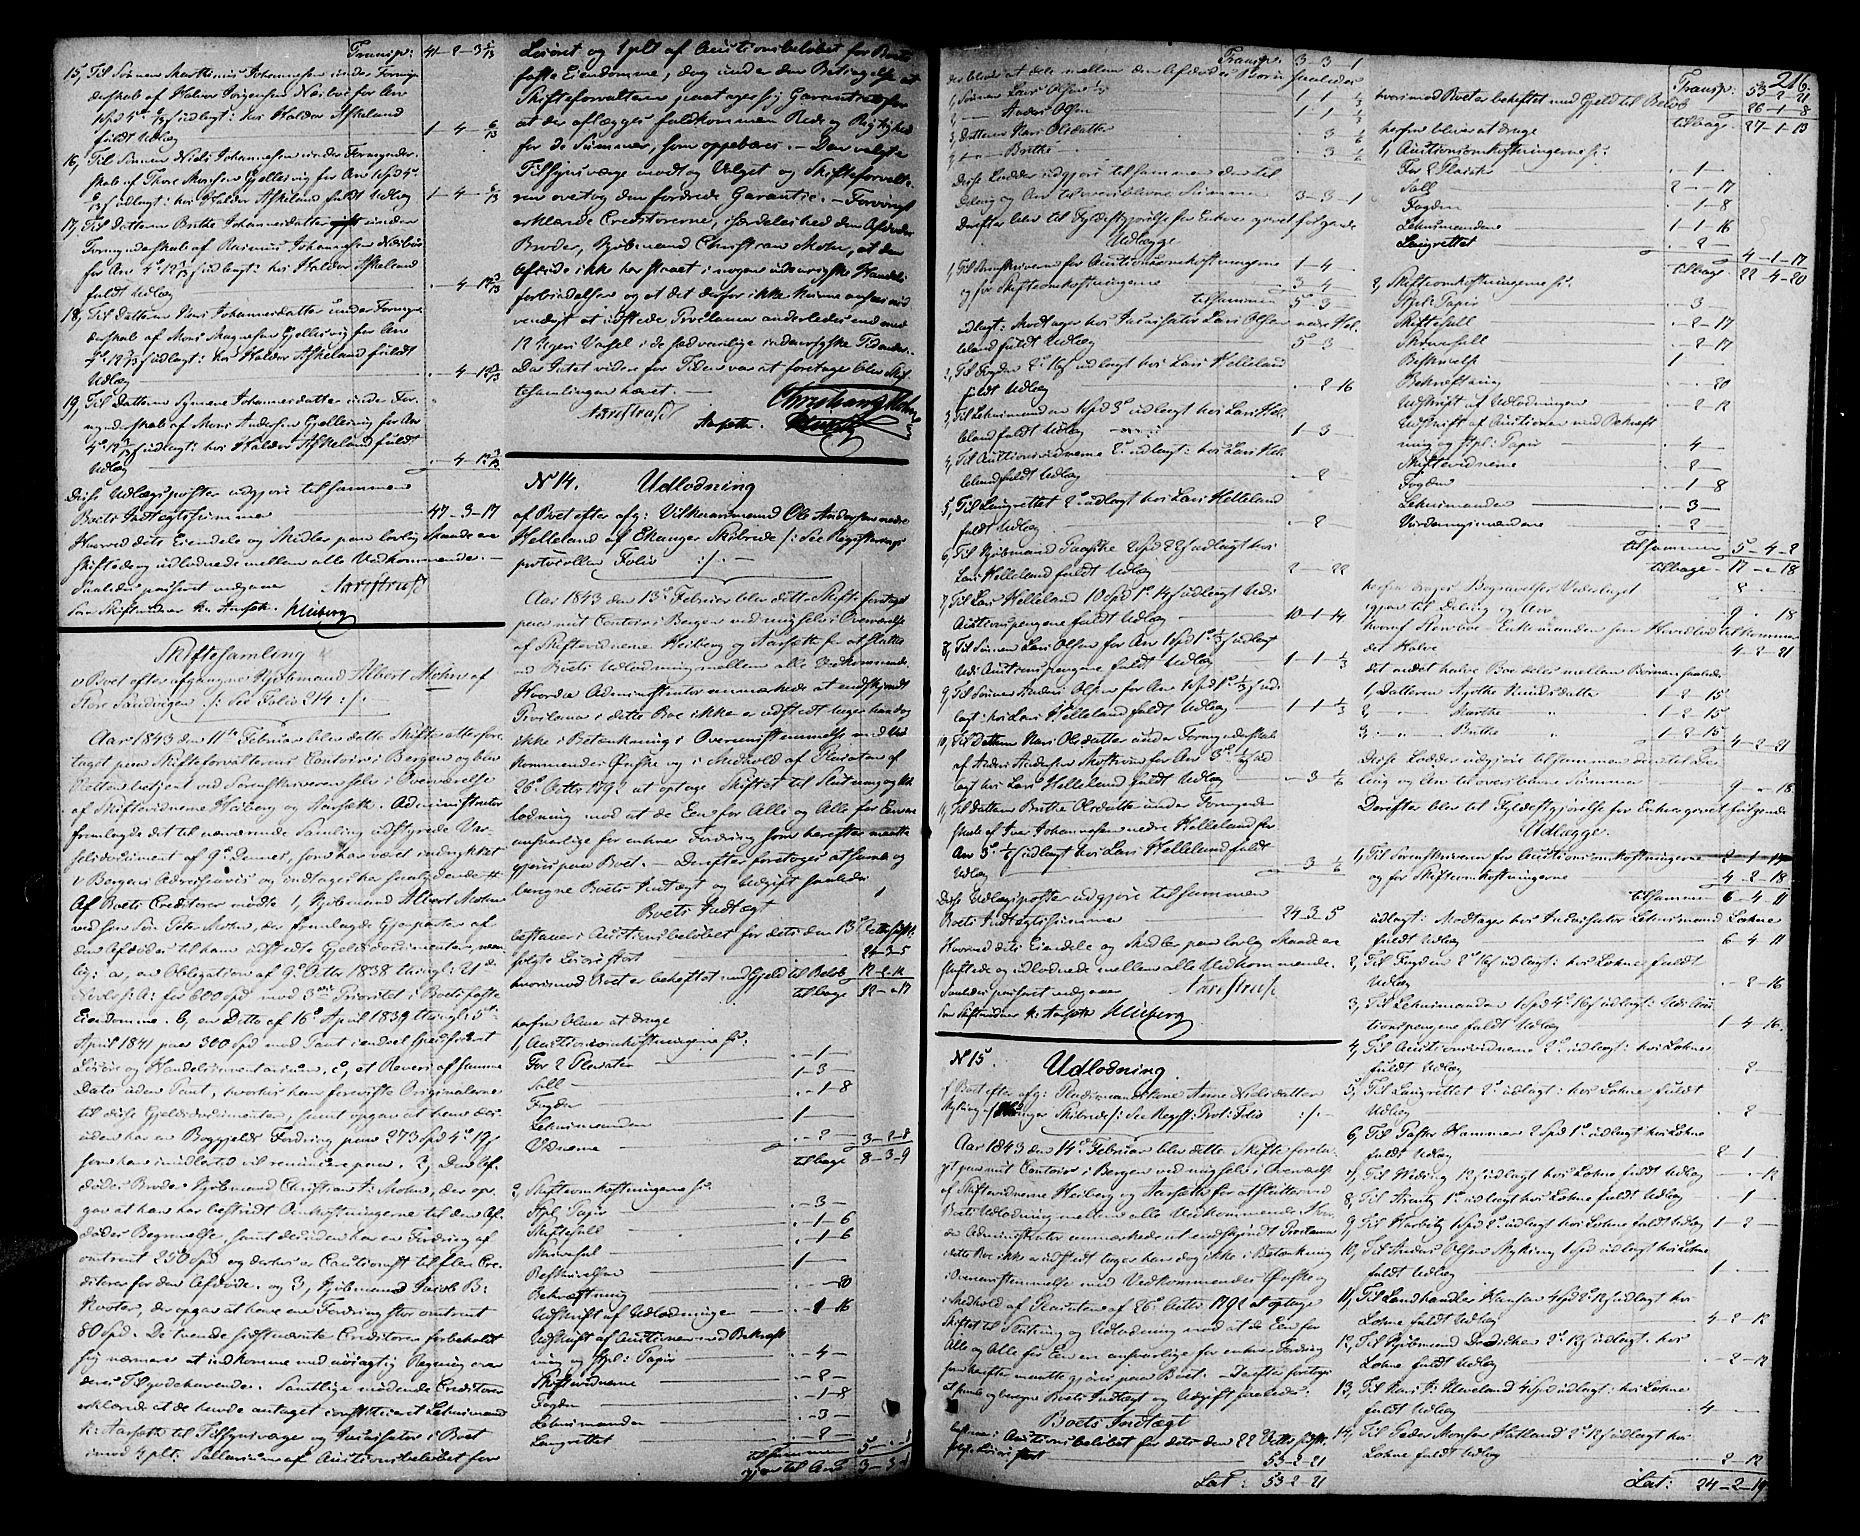 Transp: 41-2-3 5/13
15, Til Sønnen Marthinus Johannesen under Formyn-
derskab af Halvor Jørgensen
fuldt Udlæg 1-4-6/13
16, Til Sønnen Niels Johannesen under Formynder-
skab af Thore Monsen Gjellesvig for Arv 1 Spd 4
udlagt: hos Haldor Askeland fuldt Udlæg 1-4-6/13
17, Til Datteren Brithe Johannesdatter under
Formynderskab af Rasmus Johannesen
for Arv udlagt: hos Haldor Askeland
fuldt Udlæg
18, Til Datteren Kari Johannesdatter under Formyn-
derskab af Mons Magnesen Gjellesvig for Arv
udlagt: hos Haldor Askeland fuldt
Udlæg
19, Til Datteren Synneve Johannesdatter under For-
mynderskab af Mons Andersen Gjellesvig for Arv
udlagt: hos Haldor Askeland fuldt
Udlæg
Disse Udlægsposter udgjøre tilsammen
Boets Indtægtssummer 47-3-17
Hvorved dets Eiendele og Midler paa lovlig Maade ere
skiftede og udlodnede mellem alle Vedkommende.
Saaledes passeret vidgaaer
Som Skiftevidner K. Aarseth. Heiberg
Skiftesamling
i Boet efter afgangne Kjøbmand Albert Mohn af
Store Sandvigen /: See Folio 214 :/
Aar 1843 den 11te Februar blev dette Skifte efterfore-
taget paa Skifteforvalterens Contoir i Bergen og blev
Retten betjent ved Sorenskriveren selv i Overværelse
af Skiftevidnerne Heiberg og Aarseth. Administrator
fremlagde det til nærværende Samling udstyrede Var-
selsdocument af 9de Dennes, som har været indrykket
i Bergens Adressecontoirs og indtages her saalydende #
Af Boets Creditorer mødte 1, Kjøbmand Albert Mohn
ved Søn Peter Mohn, der fremlagde Gjenparter af
den Afdødes til ham udstedte Gjeldsdocumenter, nem-
lig: a, en Obligation af 9de Octbr 1838
for 600 Spd mod 3die Prioritet i Boets faste
Eiendomme. b, en Ditto af 16de April 1839 thinglyst 5te
April 1841 paa 300 Spd med Pant i endeel specificeret
Løsøre og Handelsinventarium, c, et Revers af samme
Dato uden Pant, hvorhos han foreviste Originalerne
til disse Gjeldsdocumenter, samt opgav at have des-
uden har en Boggjelds Fordring paa 273 Spd 4
som han imidlertid vil renuncere paa. 2, Den Af-
dødes Broder Kjøbmand Christian A: Mohn, der op-
gav at han har bestridt Omkostningerne til den Af-
dødes Begravelse, samt desuden har en Fordring af
omtrent 250 Spd og derhos er Cautionist til flere Cre-
ditorer for den Afdøde. og 3, Kjøbmand Jacob B:
Kroter, der opgav at have en Fordring stor omtrent
80 Spd. De trende sidstnævnte Creditorer forbeholdt
sig nærmere at indkomme med nøiagtig Regning over
deres Tilgodehavende. Samtlige mødende Creditorer
erklærede at de havde antaget constitueret Lehnsmand
K: Aarseth til Tilsynsværge og Incassator i Boet
imod 4 pCt: Sallarium af Auctionsbeløbet for
Løsøret og 1 pCt af Auctionsbeløbet for Boets
faste Eiendomme, dog under den Betingelse at
Skifteforvalteren paatager sig Garantie for
at der aflægges fuldkommen Rede og Rigtighed
for de Summer, som oppebæres. - Den valgte
Tilsynsværge modtog Valget og Skifteforvalte-
ren overtog den fordrede Garantie. - Forøvrigt
erklærede Creditorerne, i særdeleshed den Afdødes
Broder, Kjøbmand Christian Mohn, at den
Afdøde ikke har staaet i nogen udenrigske Handels-
forbindelser og at det derfor ikke kunne ansees nød-
vendigt at udstede Proclama anderledes end med
12 Ugers Varsel i de sædvanlige indenrigske Tidender.
Da Intet videre for Tiden var at foretage blev Skif-
tesamlingen hævet. -
Christian A Mohn
Aarseth. Heiberg
N 14. Udlodning
af Boet efter afg: Vilkaarsmand Ole Andersen nedre
Helleland af Ekanger Skibrede /: See Registerings
protocollen Folio :/. -
Aar 1843 den 13de Februar blev dette Skifte foretaget
paa mit Contoir i Bergen ved mig selv i Overværelse
af Skiftevidnerne Heiberg og Aarseth for at slutte
ved Boets Udlodning mellem alle Vedkommende.
Hvorda Administrator anmærkede at endskjøndt
Proclama i dette Boe ikke er udstedt tager han dog
ikke i Betænkning i Overeensstemmelse med Ved-
kommendes Ønske og i Medhold af Placaten af
26de Octbr 1791 at optage Skiftet til Slutning og Ud-
lodning mod at de Een for Alle og Alle for Een ere
ansvarlige for enhver Fordring som herefter maatte
gjøres paa Boet. - Derefter foretoges at samle og
beregne Boets Indtægt og Udgift saaledes
Boets Indtægt
bestaaer i Auctionsbeløbet for dets den 13
solgte Løsøre stort 24-3-5
hvorimod Boet er behæftet med Gjeld til Beløb
tilbage
herfra bliver at drage
1, Auctionsomkostningerne s:
For 2 Placater .-1-
Sall 1-3-
Fogden .-1-8
Lehnsmanden 1-
Vidnerne .-2- 3-2-8
tilbage 8-3-9
2, Skifteomkostningerne s:
Stpl. Papir .-3-
Skiftesall .-1-6
Skriversal .-1-6
Beskrivelse 1-
Bekræftning .-.-20
Udskrift af Udlodningen .-1-16
Udskrift af Auctionen med Bekræft-
ning og Stpl: Papir .-4-
Skiftevidnerne .-2-
Fogden .-1-8
Lehnsmanden .-3-
Laugrettet .-2-
tilsammen 5-.-8
igjen til Arv 3-3-1
Transp: 3-3-1
der bliver at dele mellem den Afdødes Børn saaledes
1, Sønnen Lars Olsen 1-1-1/3
2, — Anders Olsen 1-1-1/3
3, Datteren Kari Olsdatter .-3-1/6
4, — Brithe .-3-1/6
Disse Lodder udgjøre tilsammen den til
Deling og Arv tiloversblevne Summen 3-3-1
Derefter blev til Fyldestgjørelse for Enhver gjøret følgende
Udlægge
1, Til Sorenskriveren for Auctionsomkostningerne 1-4-
og for Skifteomkostningerne 3-4-
tilsammen 5-3-
udlagt: Modtager hos Incassator Lars Olsen nedre Hel-
leland fuldt Udlæg 5-3-
2, Til Fogden udlagt hos Lars Helleland
fuldt Udlæg .-2-16
3, Til Lehnsmanden 1 Spd 3 udlagt hos Lars Hel-
leland fuldt Udlæg 1-3-
4, Til Auctionsvidnerne 2 udlagt: hos Lars Hel-
leland fuldt Udlæg .-2
5, Til Laugrettet 2 udlagt hos Lars Helleland
fuldt Udlæg .-2
6, Til Kjøbmand Paaske 2 Spd 22 udlagt hos
Lars Helleland fuldt Udlæg 2-.-22
7, Til Lars Helleland 10 Spd 1 14 udlagt Ved i
Auctionspengene fuldt Udlæg 10-1-14
8, Til Sønnen Lars Olsen for Arv 1 Spd 1 udlagt
Ved i Auctionspengene fuldt Udlæg 1-1-1/3
9, Til Sønnen Anders Olsen for Arv 1 Spd 1 ud-
lagt: hos Lars Helleland fuldt Udlæg 1-1-1/3
10, Til Datteren Kari Olsdatter under Formynderskab
af Anders Andersen for Arv 3 ud-
lagt hos Lars Helleland fuldt Udlæg .-3-1/6
11, Til Datteren Brithe Olsdatter under Formynder-
skab af Iver Johannesen nedre Helleland for
Arv 3 udlagt hos Lars Helleland fuldt
Udlæg .-3-1/6
Disse Udlægsposter udgjøre tilsammen
Boets Indtægtssummer 24-3-5
Hvorved dets Eiendele og Midler paa lovlig Maade ere
skiftede og udlodnede mellem alle Vedkommende.
Saaledes passeret vidgaaer
Som Skiftevidner K: Aarseth Heiberg
N 15. Udlodning.
i Boet efter afg: Anne Nielsdatter
Myking af Ekanger Skibrede /: See Regist: Prot: Folio :/-
Aar 1843 den 14de Februar blev dette Skifte foreta-
get paa mit Contoir i Bergen ved mig selv i Overværelse
af Skiftevidnerne Heiberg og Aarseth for at slutte ved
Boets Udlodning mellem alle Vedkommende. Hvor-
da Administrator anmærkede at endskjøndt Proclama
i dette Boe ikke er udstedt tager han dog ikke i Betænkning
i Overeensstemmelse med Vedkommendes Ønske og
i Medhold af Placaten af 26de Octbr 1791 at optage
Skiftet til Slutning og Udlodning mod at de Een for
Alle og Alle for Een ere ansvarlige for enhver Fordring
som herefter maatte gjøres paa Boet. - Derefter foretoges
at samle og beregne Boets Indtægt og Udgift saaledes:
Boets Indtægt
bestaaer i Auctionsbeløbet for dets den 22
solgte Løsøre stort 53-2-21
Lat: 53-2-21
216.
Transp: 53-2-21
hvorimod Boet er behæftet med Gjeld til Beløb 26-1-8
tilbage 27-1-13
herfra bliver at drage
1, Auctionsomkostningerne s:
For 2 Placater .-1-
Sall 2-.-17
Fogden .-1-8
Lehnsmanden 1-1-16
Laugrettet .-2- 4-1-17
tilbage 22-4-20
2, Skifteomkostningerne s:
Stpl: Papir .-3-
Skiftesall .-2-17
Skriversall .-2-17
Beskrivelse 1
Bekræftning .-.-20
Udskrift af Udlodningen .-2-12
Udskrift af Auctionen med Bekræft-
ning og Stpl: Papir .-4-
Skiftevidnerne .-2-
Fogden .-1-8
Lehnsmanden .-3-
Vurderingsmændene .-2
tilsammen 5-4-2
tilbage 17-.-18
herfra drages Begravelses Vederlaget 8
igjen til Deling og Arv 9-.-18
hvoraf Enkemanden som Hovedlod tilkommer
det Halve 4-2-21
det andet halve Boe deles mellem Børnene saaledes
1, Datteren Agathe Knudsdatter 1-2-15
2, — Marthe 1-2-15
3, — Brithe 1-2-15
4-2-21
Disse Lodder udgjøre tilsammen den til De-
ling og Arv tiloversblevne Summen 9-.-18.
Derefter blev til Fyldestgjørelse for Enhver gjøret følgende
Udlægge.
1, Til Sorenskriveren for Auctionsomkostningerne 2-1-17
og for Skifteomkostningerne 4-2-18
tilsammen 6-4-11
udlagt: Modtager hos Incassator Lehnsmand Lohne
fuldt Udlæg 6-4-11
2, Til Fogden udlagt: hos Lohne fuldt
Udlæg .-2-16
3, Til Lehnsmanden 1 Spd 4 16 udlagt: Ved i Auc-
tionspengene fuldt Udlæg 1-4-16.
4, Til Auctionsvidnerne 2 udlagt: hos Lohne
fuldt Udlæg .-2
5, Til Laugrettet 2 udlagt: hos Lohne fuldt
Udlæg .-2-
6, Til Pastor Hammer 2 Spd 1 udlagt hos Lohne
fuldt Udlæg 2-1
7, Til Weding 12 udlagt hos Lohne fuldt Udlæg .-.-12
8, Til Arentz 1 udlagt hos Lohne fuldt Udlæg .-1-
9, Til Harbitz 1 Spd 2 udlagt hos Lohne fuldt Udlæg 1-2-
10, Til Anders Olsen Myking 1 Spd udlagt hos Lohne
fuldt Udlæg 1-
11, Til Landhandler Hansen 4 Spd 2 12 udlagt hos
Lohne fuldt Udlæg 4-2-12
12, Til Kjøbmand 2 12 udlagt: hos
Lohne fuldt Udlæg .-2-12
13, Til Lars Kleveland 4 Spd udlagt: hos Lohne
fuldt Udlæg 4-
14, Til Peder Monsen Hatland 2 12 udlagt hos
Lohne fuldt Udlæg .-2-12
Lat: 24-2-19